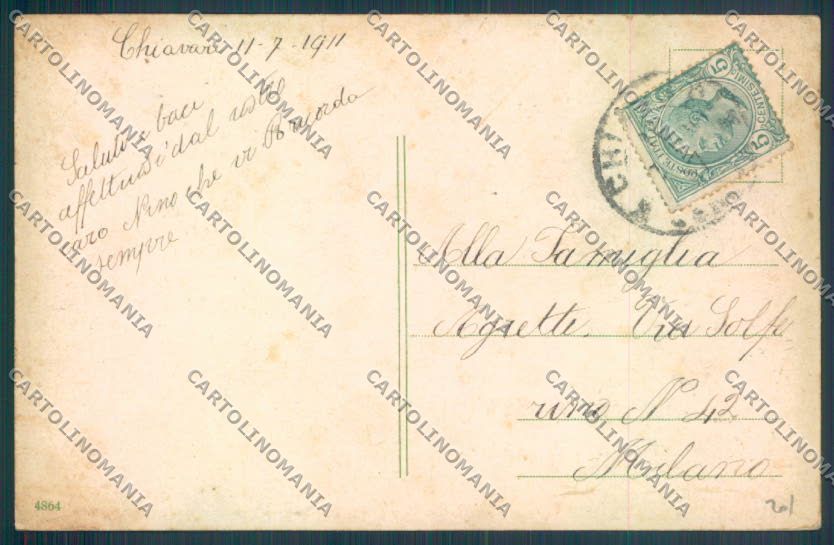 Chiavari 11-7-1911
Saluti e baci
affettuosi dal vostro
caro Nino che vi Ricorda
sempre
POSTE ITALIANE
CENTESIMI 5
5
CHIAVARI
Alla Famiglia
Agretti. Via Solfe
rino N 42
Milano
4864
201
CARTOLINOMANIA